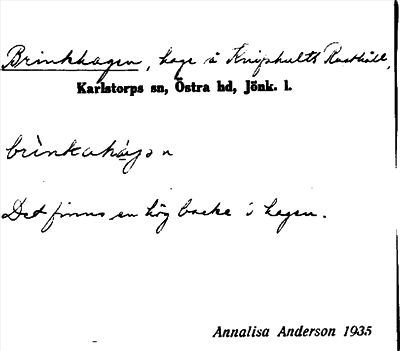 Brinkhagen, hage å Kniphults Rusthåll,
Karlstorps sn, Östra hd, Jönk. l.
brìnkahágən
Det finns en hög backe i hagen.
Annalisa Anderson 1935